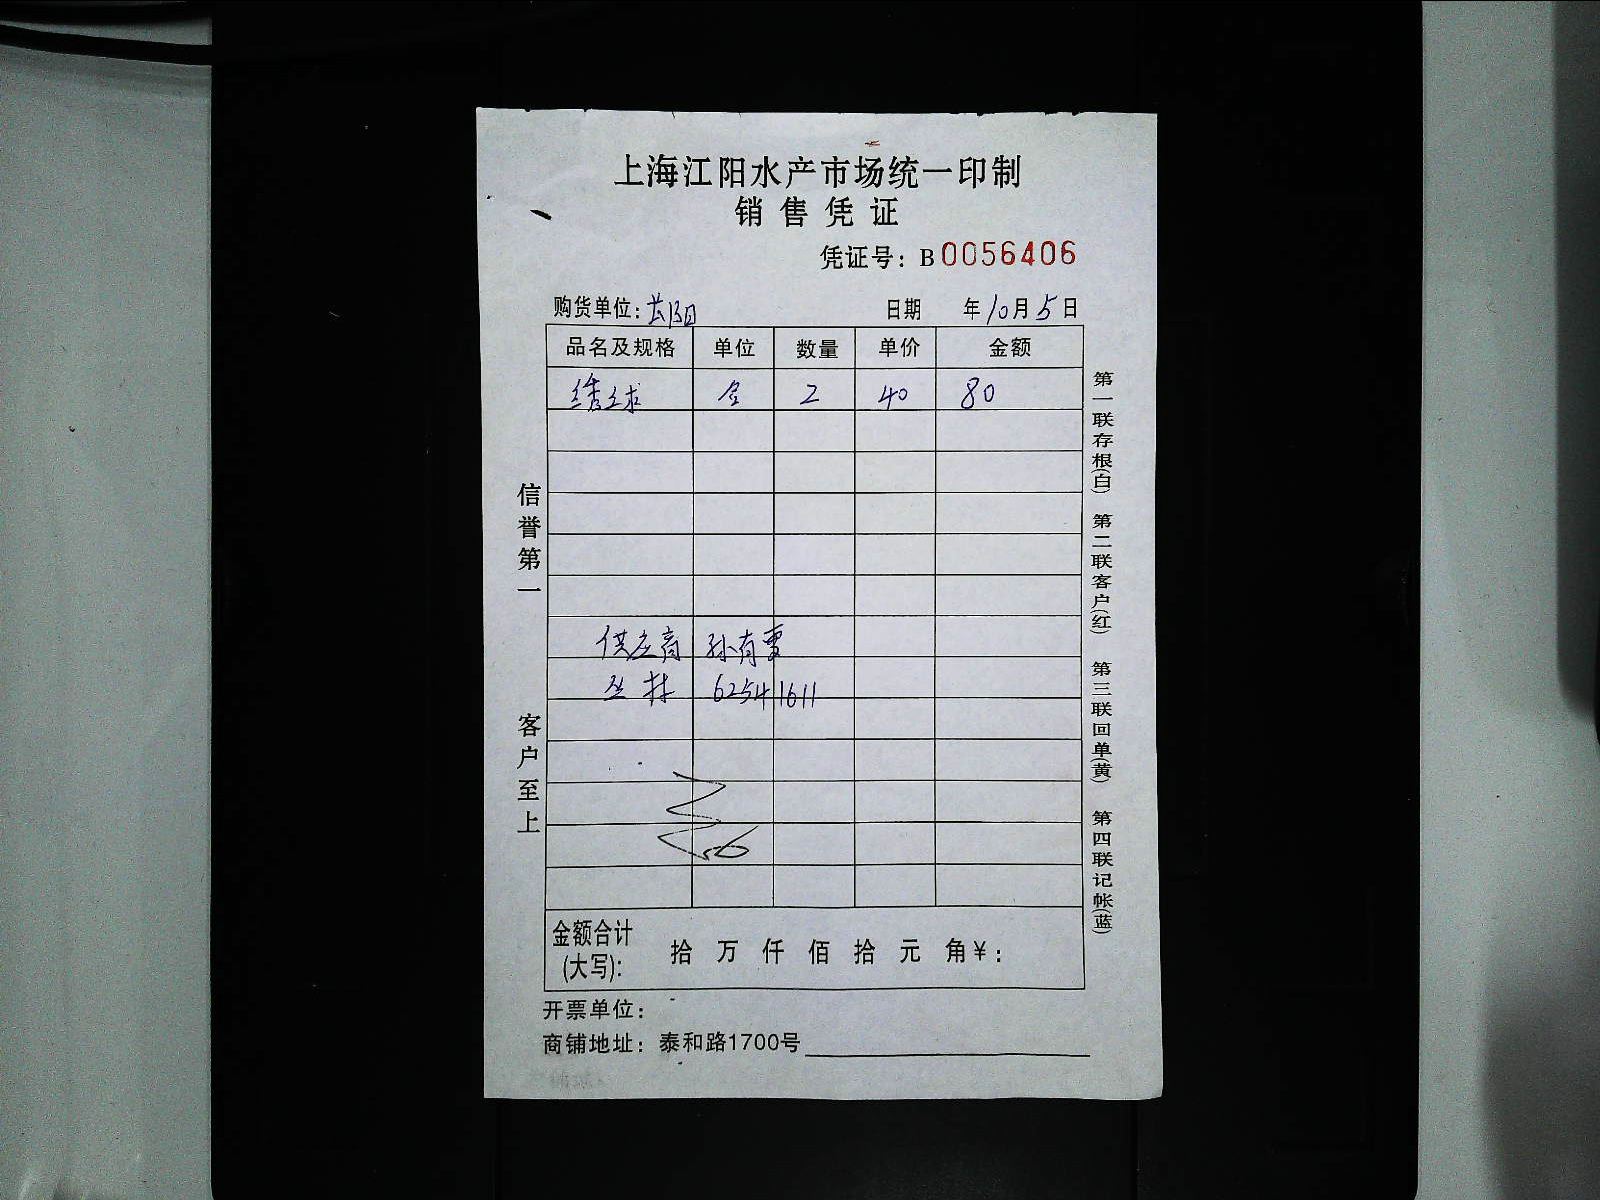 上海江阳水产市场统一印制
销售凭证
凭证号：B0056406
购货单位： 日期 年10月5日
品名及规格 单位 数量 单价 金额
绣球 2 40 80
供应商 孙有雷
62541611
金额合计(大写): 拾 万 仟 佰 拾 元 角￥：
开票单位：
商铺地址：泰和路1700号
信誉第一 客户至上
第一联存根(白) 第二联客户(红) 第三联回单(黄) 第四联记帐(蓝)